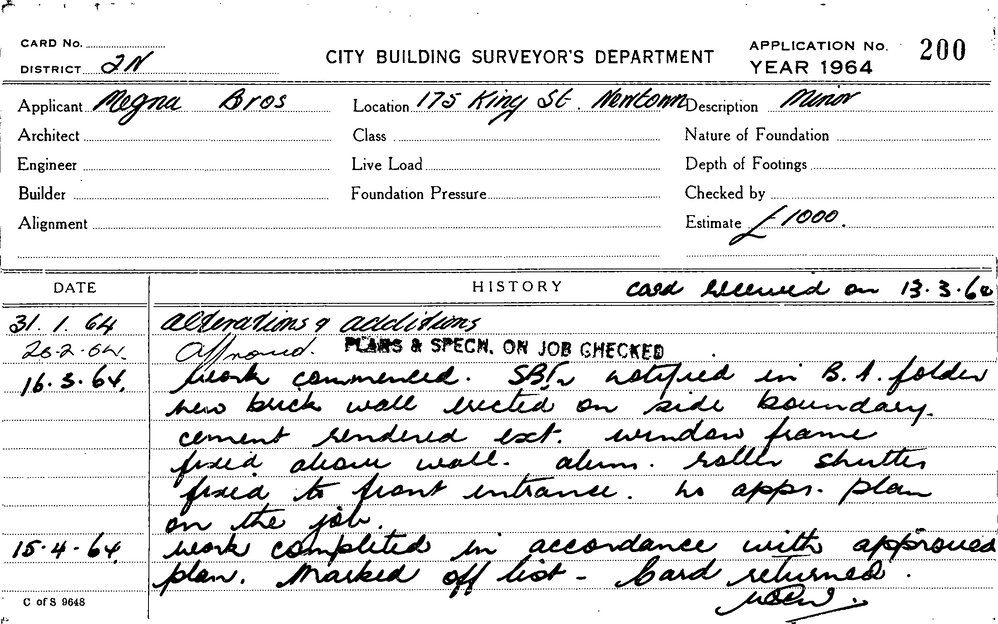 CARD No.
CITY BUILDING SURVEYOR'S DEPARTMENT
APPLICATION No. 200
DISTRICT 2N
YEAR 1964
Applicant Megna Bros Location 175 King St. Newtown Description Minor
Architect Class Nature of Foundation
Engineer Live Load Depth of Footings
Builder Foundation Pressure Checked by
Alignment Estimate £1000.
DATE HISTORY card received on 13.3.64
31.1.64 Alterations & additions
26.2.64. Approved. PLANS & SPECN. ON JOB CHECKED
16.3.64. Work commenced. notified in B.A. folder
new brick wall erected on side boundary.
cement rendered ext. window frame
fixed above wall. alum. roller shutter
fixed to front entrance. no appr. plan
on the job.
15.4.64 Work completed in accordance with approved
plan. Marked off list - Card returned.
C of S 9648